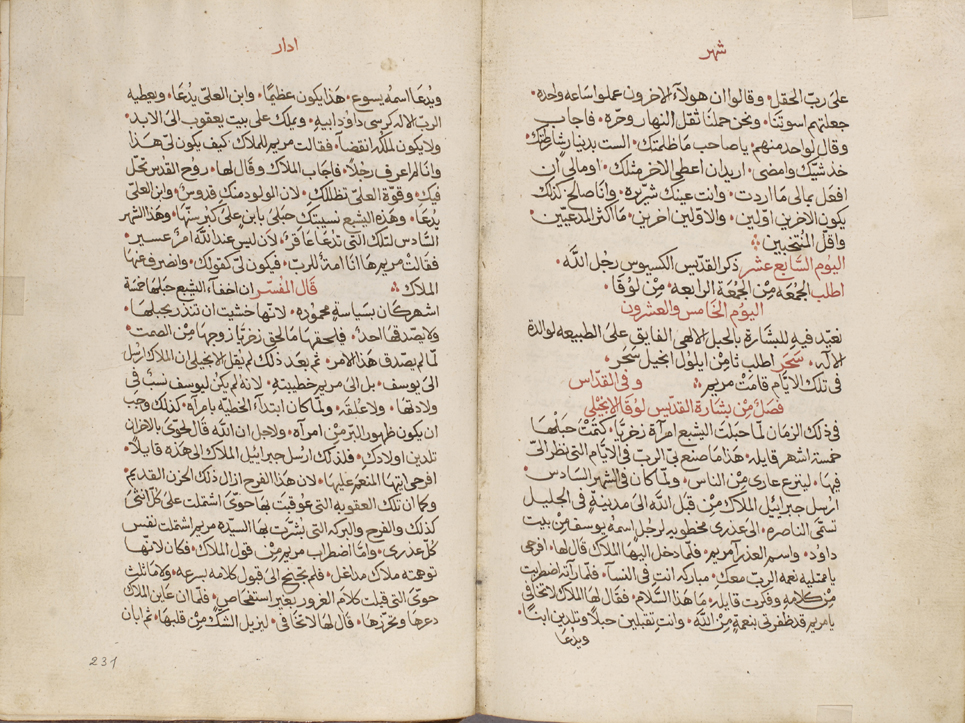 شهر
على ربّ الحقل وقالوا ان هولآء الاخرون عملوا ساعه واحده
جعلتهم اسوتنا ونحن حملنا ثقل النهار وحرّه فاجاب
وقال لواحد منهم ياصاحب ماظلمتك الست بدينار شارطتك
خذ شيّك وامضى اريد ان اعطى الاخر مثلك اومالى ان
افعل بمالى ما اردت وانت عينك شرّيره وانا صالح كذلك
يكون الاخرين اوّلين والاوّلين اخرين ما اكثر المدعيّين
واقلّ المنتخبين
اليوم السّابع عشر ذكر القدّيس الكسيوس رجُل الله
اطلب الجمُعَه مِنْ الجمُعَة الرابعه مِنْ لوُقا
اليوم الخَامس والعشرون
نعيّد فيه للبشارة بالحبل الالهى الفايق على الطبيعه لوالدة
الاله سَحَر اطلب ثامن ايلول انجيل سَحَر
فى تلك الايّام قامَتْ مريم وفى القدّاس
فصَلْ مِنْ بشارة القدّيس لوقا الانجيْلى
فى ذلك الزمان لمّا حبلَت اليشبع امرآة زخريّا كتمَتْ حَبلهَا
خمسة اشهر قايله هذا ماصنع بى الربّ فى الايّام التى نظر الىّ
فيها لينزع عارى مِنْ الناس ولمّا كان فى الشهر السّادس
ارسل جبرايل الملاك مِنْ قبل الله الى مدينةٍ فى الجليل
تسمّى الناصره الى عذرى مخطوبه لرجلٍ اسمه يوسف مِنْ بيت
داوُد واسم العذرآ مريم فلمّا دخل اليها الملاك قال لها افرحى
ياممتليه نعمه الربّ معك مباركه انتِ فى النسآ فلمّا رآته اضطربت
مِنْ كلامه وفكّرت قايله ما هذا السّلام فقال لها الملاك لاتخافى
يامريم قد ظفرتى بنعمةٍ مِنْ الله وانتِ تقبلين حبلًا وتلدين ابنًا
ويدُعَا
ادار
ويدُعَا اسمُه يسوع هَذا يكون عظيمًا وابن العلىّ يدُعَا ويعطيه
الربّ الاله كرسى داوُد ابيهِ ويملك على بيت يعقوب الى الابد
ولايكون لملكه انقضآ فقالت مريم للملاك كيف يكون لى هذا
وانا لم اعرف رجُلًا فاجاب الملاك وقال لها روُح القدُس تحلّ
فيكِ وقوّة العلىّ تظللك لان المولود منك قدوسٌ وابن العلىّ
يدُعَا وهذه اليشبع نسيبتك حبلى بابنٍ على كبر سنّها وهذا الشهر
السّادس لتلك التى تدُعَا عاقرً لان ليس عند الله امرٌ عسير
فقالت مريم هَا انا امةٌ للربّ فيكون لى كقولك وانصرف عنها
الملاك قَال المفسّر ان اخفآء اليشبع حبلها خمسَة
اشهر كان بسياسةٍ محموده لانّها خشيت ان تنذر بحبلها
ولايصدّقها احدٌ فيلحقها مالحق زخريّا زوجها مِنْ الصمت
لمّا لم يصدّق هَذا الامر ثم بعد ذلك لم يقل الانجيلى ان الملاك ارسل
الى يوسف بل الى مريم خطيبته لانه لم يكن ليوسف نسبٌ فى
ولادتها ولاعلقه ولمّا كان ابتدآء الخطيّه بامرآه كذلك وجب
ان يكون ظهور البّر مِنْ امرآه ولاجل ان الله قال لحوّى بالاحزان
تلدين اولادك فلذلك ارسل جبرايل الملاك الى هذه قايلًا
افرحى ايتها المنعم عليها لان هذا الفرح ازال ذلك الحزن القديم
وكما ان تلك العقوبه التى عوقبت بها حوّى اشتملت على كلّ انثى
كذلك والفرح والبركه التى بشّرت بها السيّده مريم اشتملت نفس
كلّ عذرى وامّا اضطراب مريم مِنْ قول الملاك فكان لانّها
توهمته ملاك مداغل فلم تجنح الى قبول كلامه بسرعه ولاماثلت
حوّى التى قبلت كلام الغرور بغير استفحاص فلمّا ان عاين الملاك
دعرها وتحرّزها قال لها لاتخافى ليزيل الشكّ مِنْ قلبها ثم ابان
231